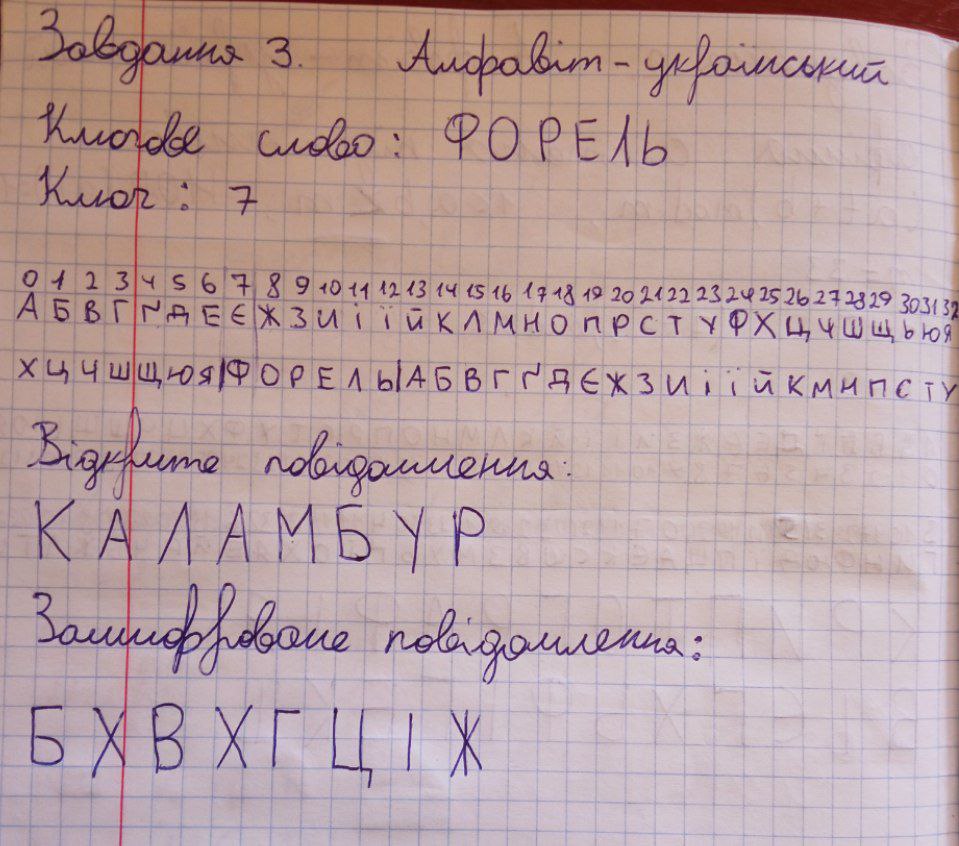 Завдання 3. Алфавіт - український
Ключове слово: ФОРЕЛЬ
Ключ: 7
0 1 2 3 4 5 6 7 8 9 10 11 12 13 14 15 16 17 18 19 20 21 22 23 24 25 26 27 28 29 30 31 32
А Б В Г Ґ Д Е Є Ж З И І Ї Й К Л М Н О П Р С Т У Ф Х Ц Ч Ш Щ Ь Ю Я
Х Ц Ч Ш Щ Ю Я | Ф О Р Е Л Ь | А Б В Г Ґ Д Є Ж З И І Ї Й К М Н П С Т У
Відкрите повідомлення:
КАЛАМБУР
Зашифроване повідомлення:
БХВХГЦІЖ